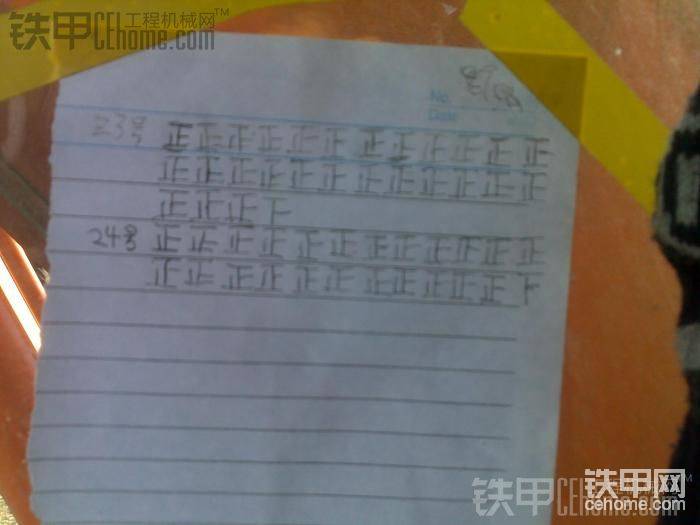 铁甲 工程机械网™ CEhome.com
No.
Date
23号 正正正正正正正正正正正正
正正正正正正正正正正正正
正正正下
24号 正正正正正正正正正正正正
正正正正正正正正正正正下
铁甲CEhome.com
铁甲网
cehome.com